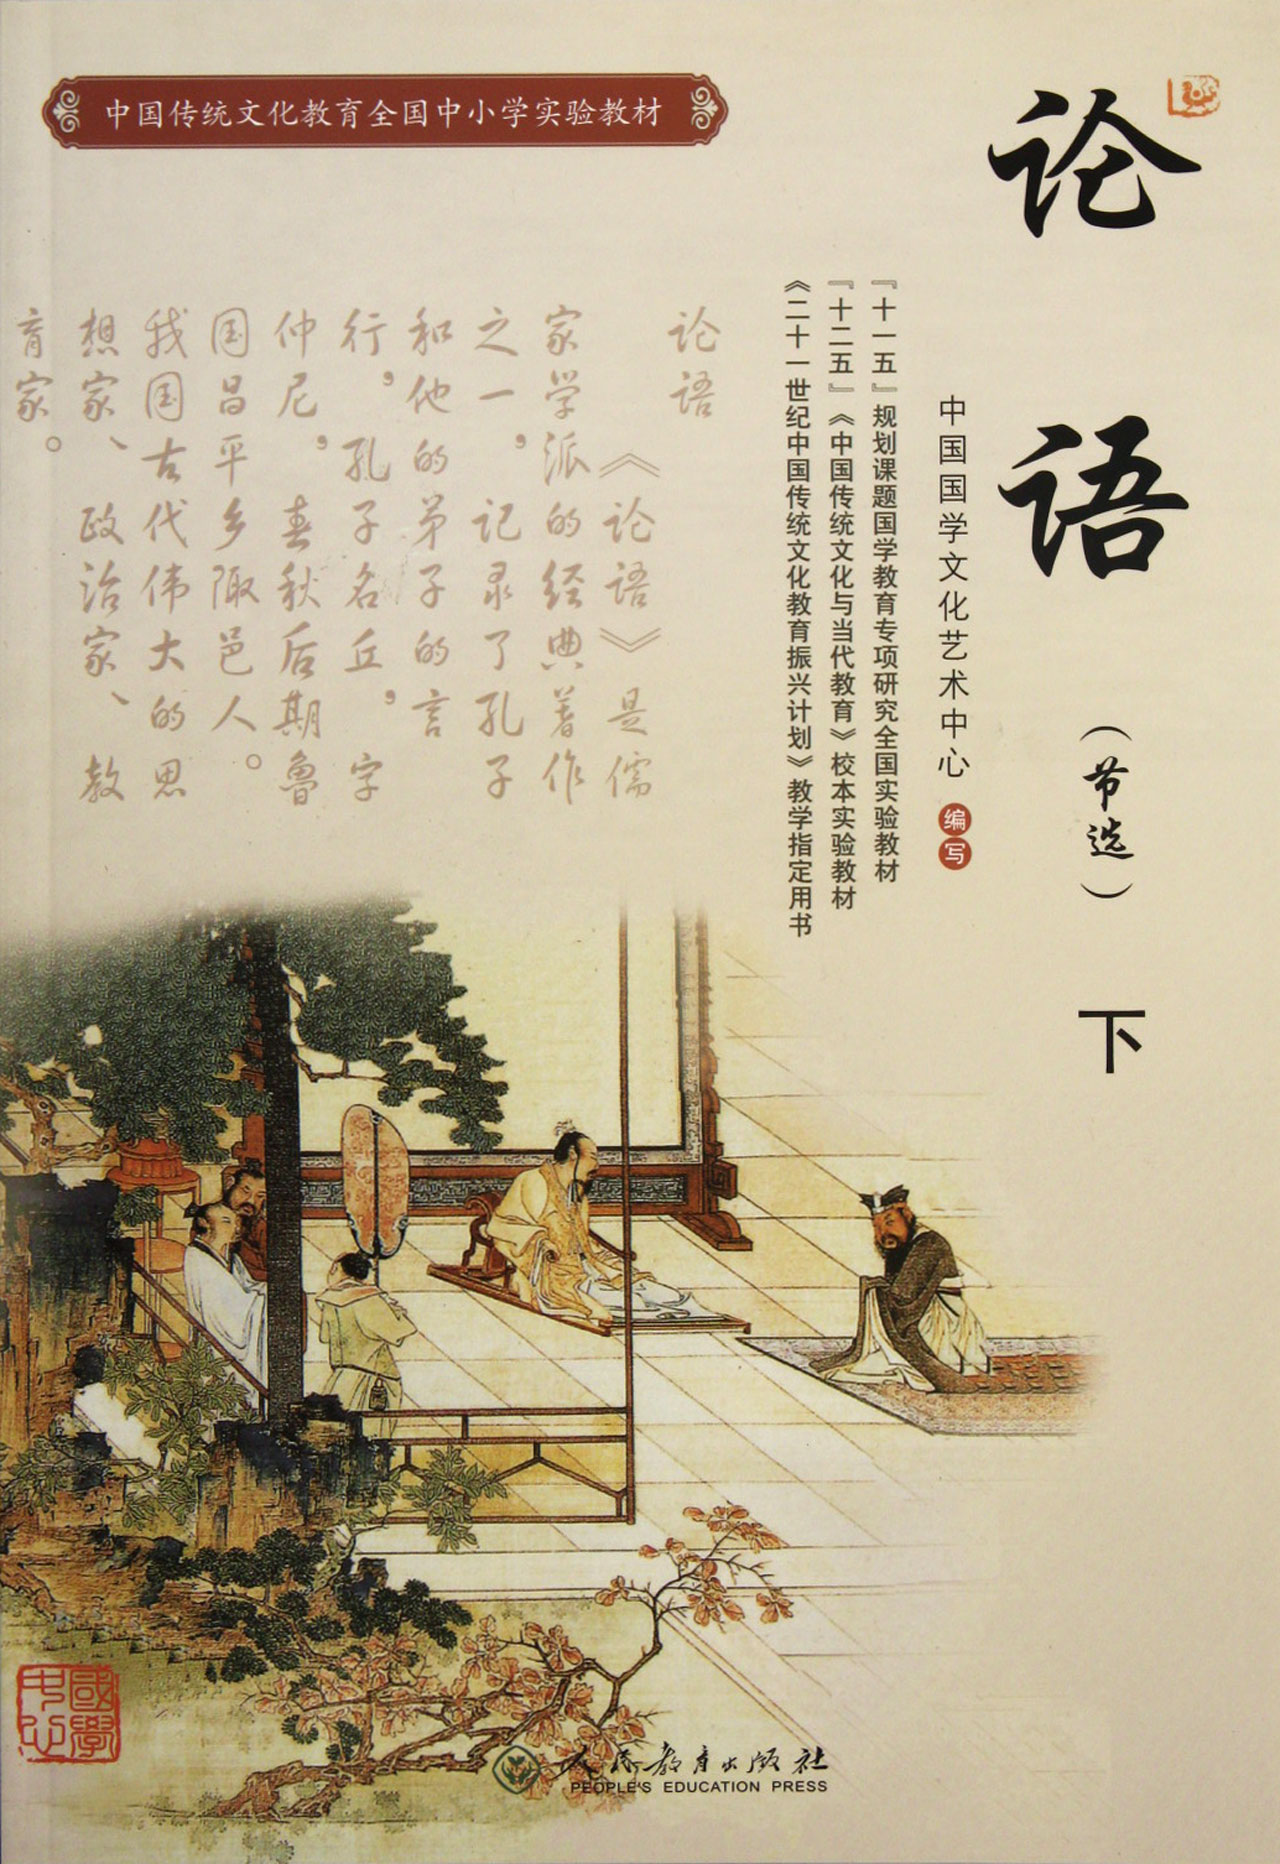 中国传统文化教育全国中小学实验教材
论语
（节选）
下
中国国学文化艺术中心 编写
『十一五』规划课题国学教育专项研究全国实验教材
『十二五』《中国传统文化与当代教育》校本实验教材
《二十一世纪中国传统文化教育振兴计划》教学指定用书
论语
《论语》是儒
家学派的经典著作
之一，记录了孔子
和他的弟子的言
行，孔子名丘，字
仲尼，春秋后期鲁
国昌平乡陬邑人。
我国古代伟大的思
想家、政治家、教
育家。
國學中心
人民教育出版社
PEOPLE'S EDUCATION PRESS